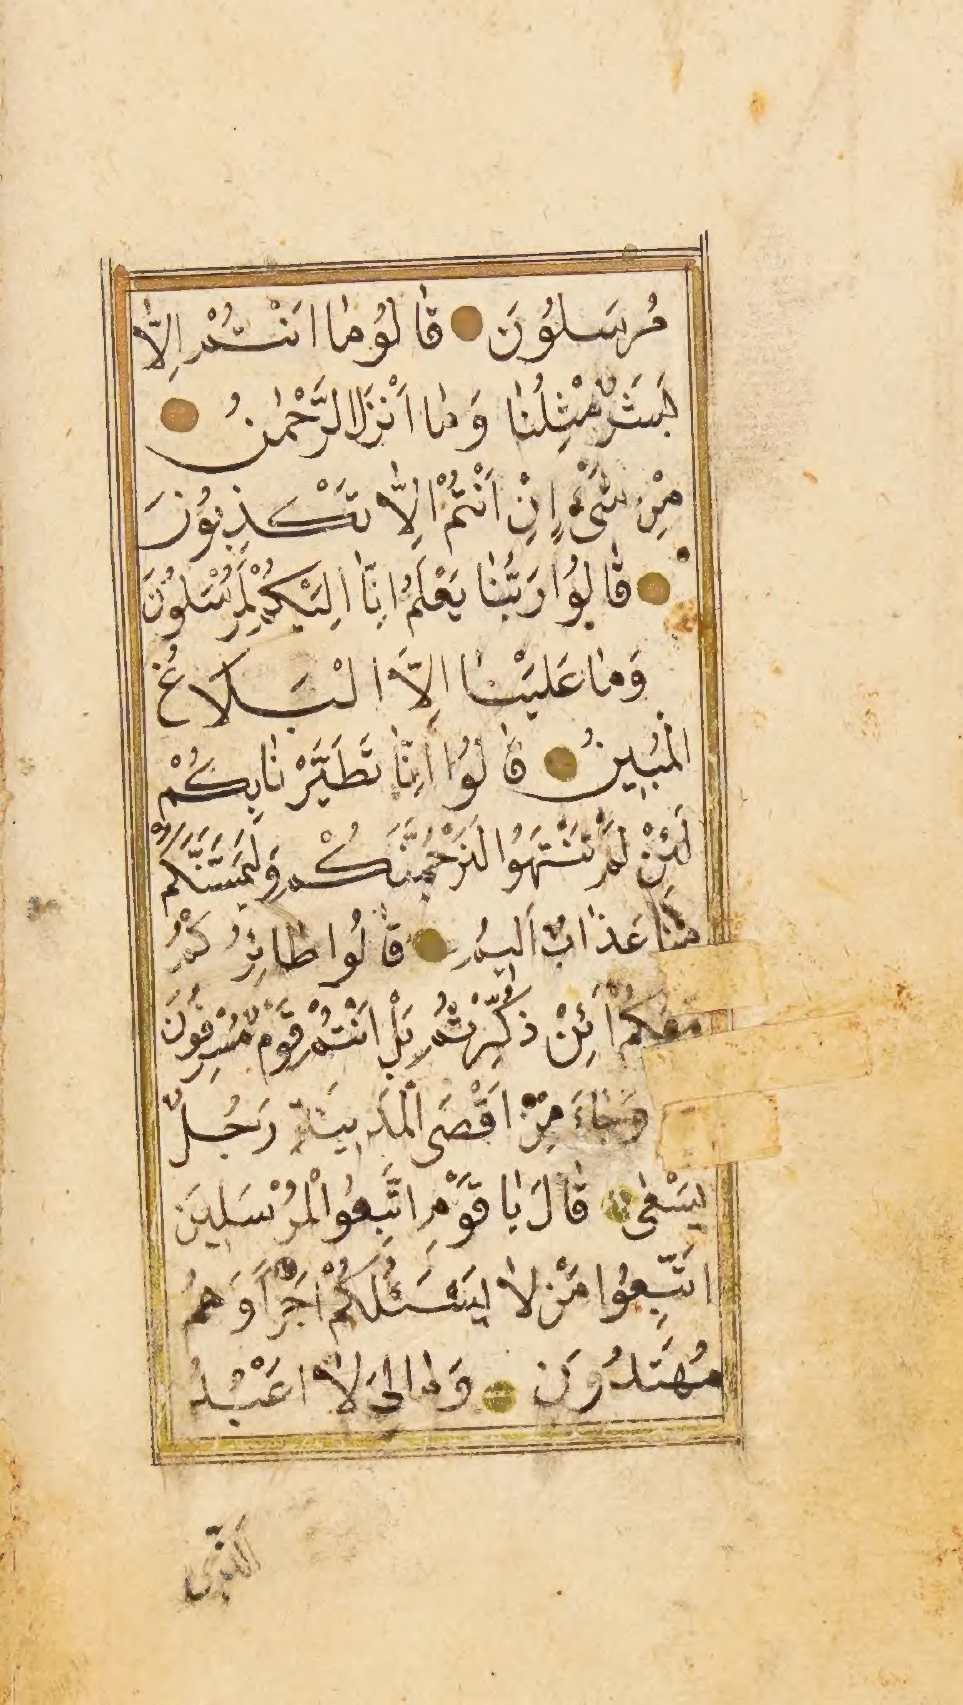 مُرْسَلُونَ قَالُوا مَا اَنْتُمْ اِلَّا
بَشَرٌ مِثْلُنَا وَمَا اَنْزَلَ الرَّحْمٰنُ
مِنْ شَىْءٍ اِنْ اَنْتُمْ اِلَّا تَكْذِبُونَ
قَالُوا رَبُّنَا يَعْلَمُ اِنَّا اِلَيْكُمْ لَمُرْسَلُونَ
وَمَا عَلَيْنَا اِلَّا الْبَلَاغُ
الْمُبِينُ قَالُوا اِنَّا تَطَيَّرْنَا بِكُمْ
لَئِنْ لَمْ تَنْتَهُوا لَنَرْجُمَنَّكُمْ وَلَيَمَسَّنَّكُمْ
مِنَّا عَذَابٌ اَلِيمٌ قَالُوا طَائِرُكُمْ
مَعَكُمْ اَئِنْ ذُكِّرْتُمْ بَلْ اَنْتُمْ قَوْمٌ مُسْرِفُونَ
وَجَاءَ مِنْ اَقْصَى الْمَدِينَةِ رَجُلٌ
يَسْعٰى قَالَ يَا قَوْمِ اتَّبِعُوا الْمُرْسَلِينَ
اتَّبِعُوا مَنْ لَا يَسْـَٔلُكُمْ اَجْرًا وَهُمْ
مُهْتَدُونَ وَمَا لِىَ لَا اَعْبُدُ
الَّذِى